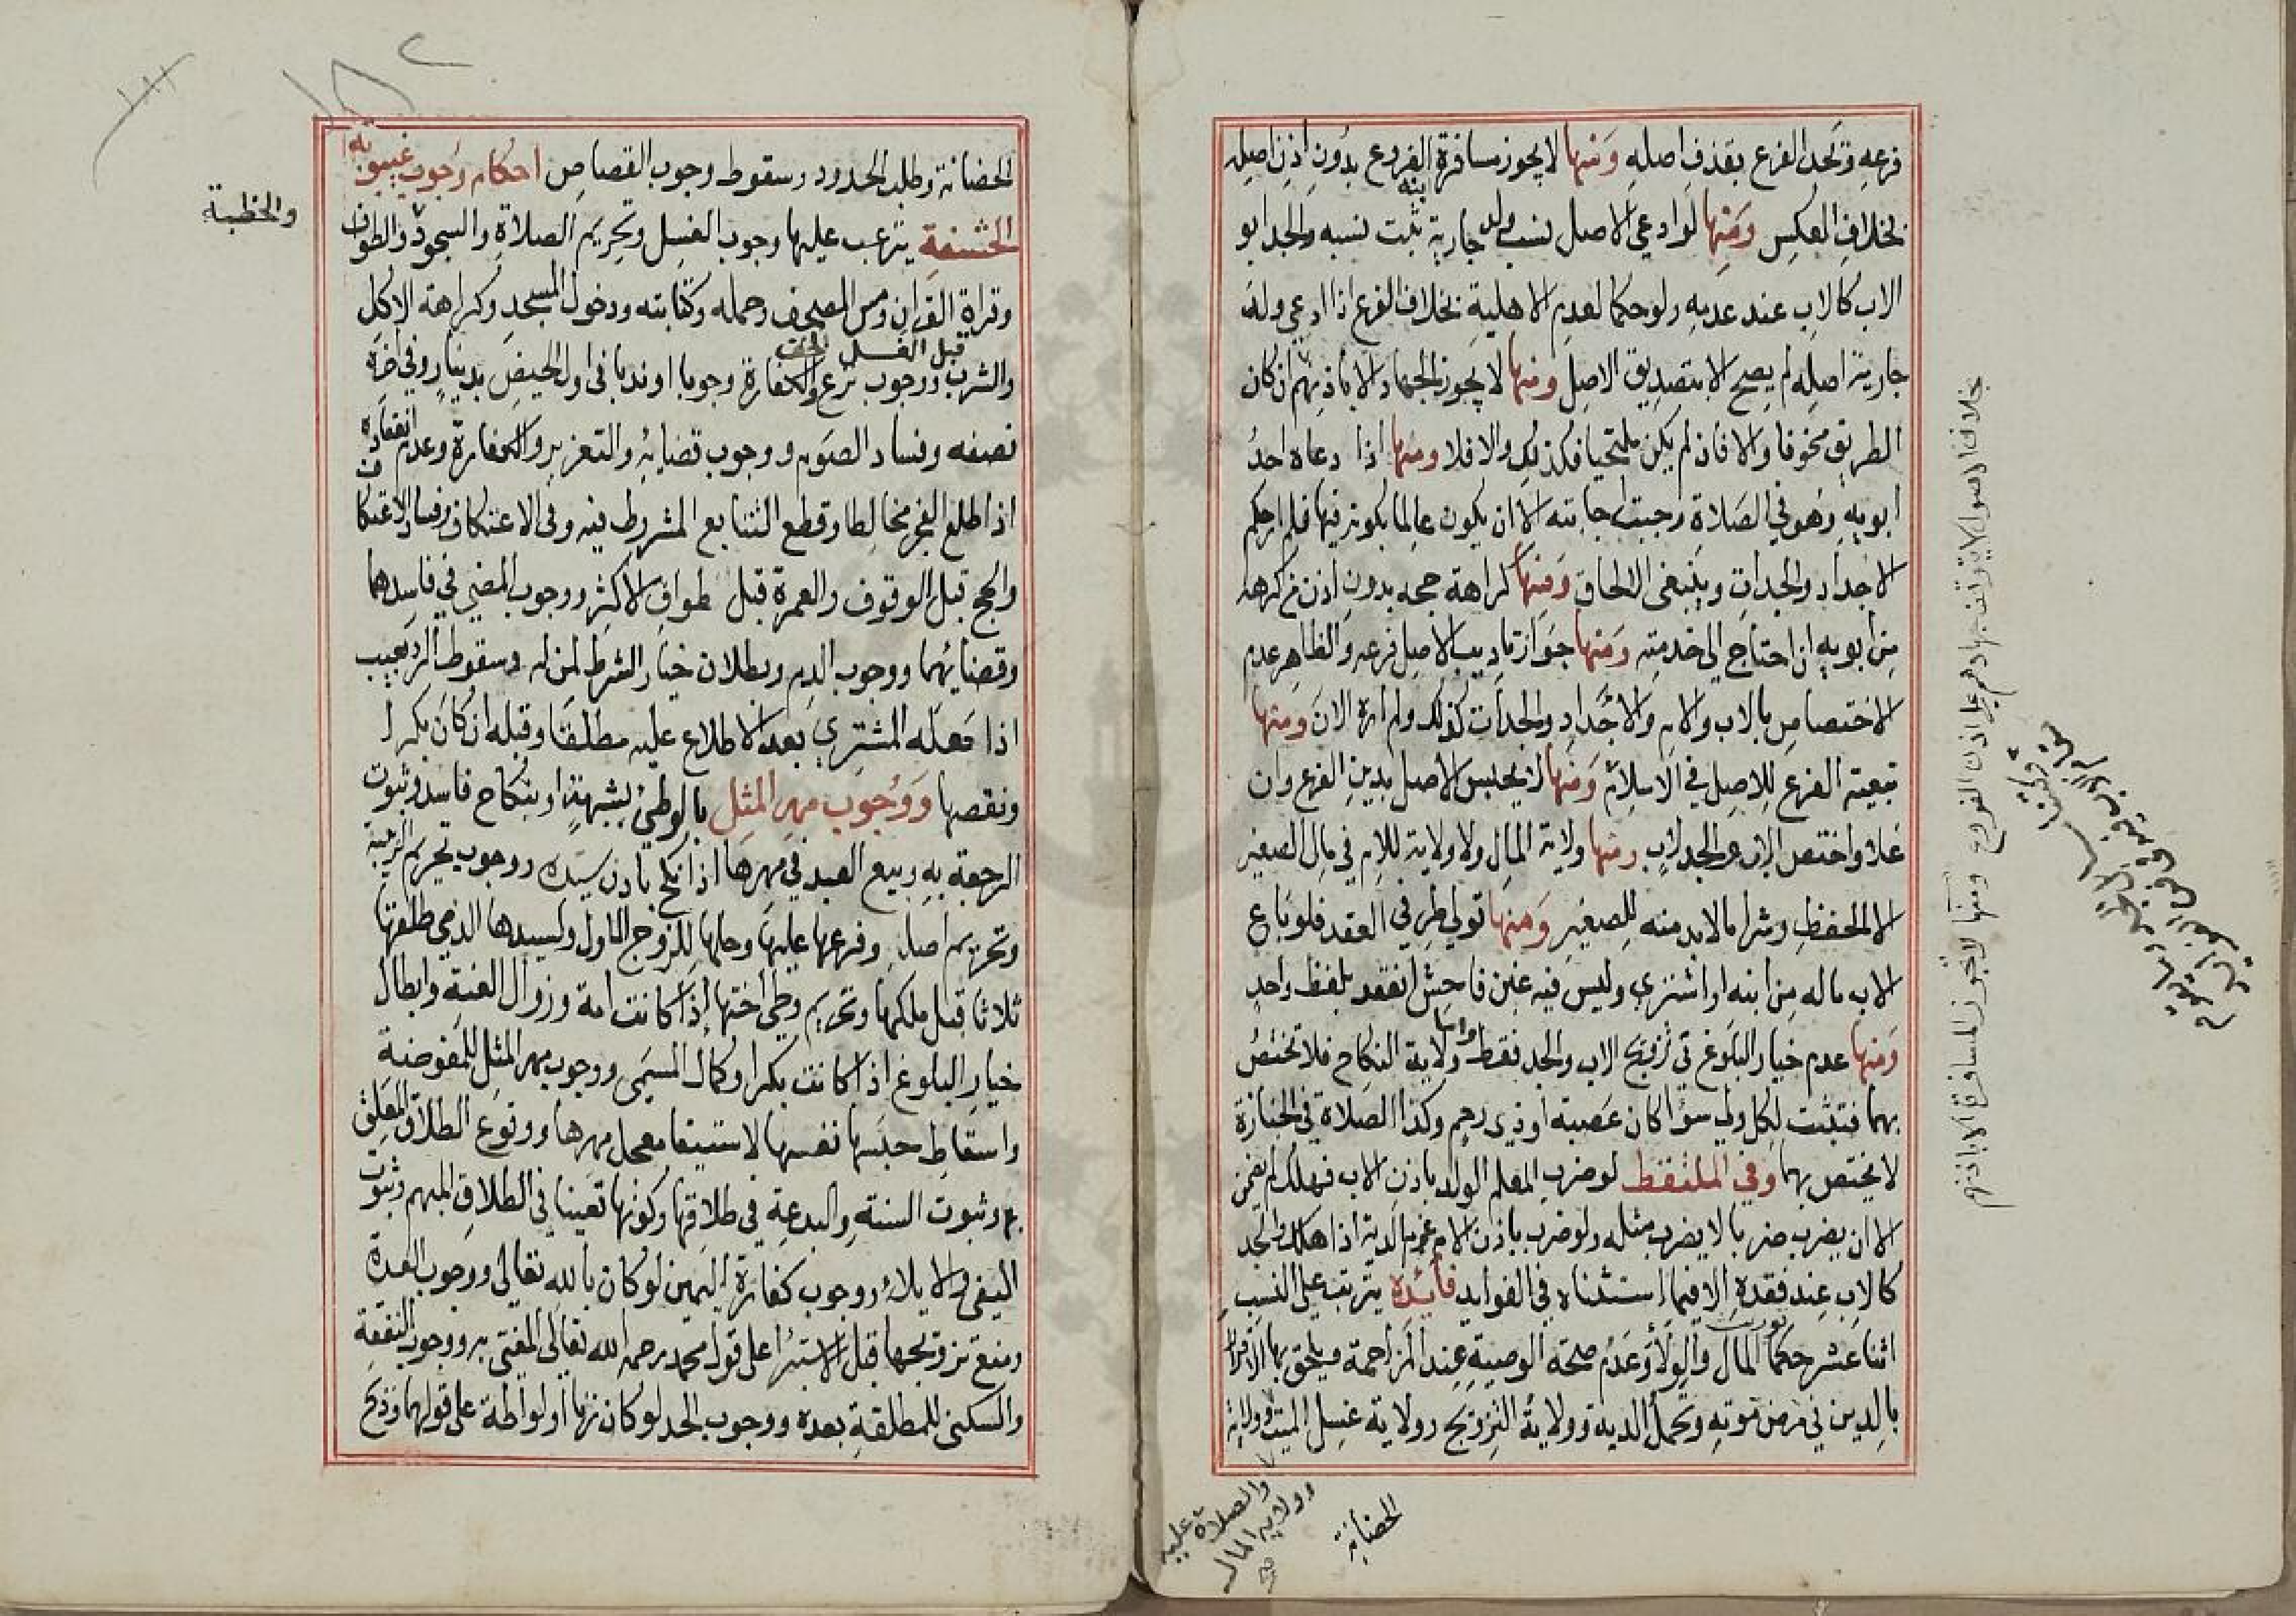 فرعه وتحد الفرع بقذف اصله ومنها لا يجوز مسافرة الفروع بدون اذن اصله
بخلاف العكس ومنها لو ادعى الاصل نسب ولد جارية ابنه ثبت نسبه والجد ابو
الاب كالاب عند عدمه ولو حكما لعدم الاهلية بخلاف الفرع اذا ادعى ولد
جارية اصله لم يصح الا بتصديق الاصل ومنها لا يجوز الجهاد الا باذنهم ان كان
الطريق مخوفا والا فان لم يكن ملتحيا فكذلك والا فلا ومنها اذا دعاه احد
ابويه وهو في الصلاة وجبت اجابته الا ان يكون عالما بكونه فيها فلم ار حكم
الاجداد والجدات وينبغي الالحاق ومنها كراهة حجه بدون اذن من كرهه
من ابويه ان احتاج الى خدمته ومنها جواز تاديب الاصل فرعه والظاهر عدم
الاختصاص بالاب والام والاجداد والجدات كذلك ولم اره الان ومنها
تبعية الفرع للاصل في الاسلام ومنها لا يحبس الاصل بدين الفرع وان
علا واختص الاب والجد لاب ومنها ولاية المال ولا ولاية للام في مال الصغير
الا الحفظ وشرا ما لابد منه للصغير ومنها تولي طرفي العقد فلو باع
الاب ماله من ابنه او اشترى وليس فيه غبن فاحش انعقد بلفظ واحد
ومنها عدم خيار البلوغ في تزويج الاب والجد فقط واما ولاية النكاح فلا تختص
بهما فتثبت لكل ولي سوا كان عصبة او ذي رحم وكذا الصلاة في الجنازة
لا يختص بهما وفي الملتقط لو ضرب المعلم الولد باذن الاب فهلك لم يضمن
الا ان يضرب ضربا لا يضرب مثله ولو ضرب باذن الام غرم الدية اذا هلك والجد
كالاب عند فقده الا فيما استثناه في الفوايد فائدة يترتب على النسب
اثنا عشر حكما توريث المال والولا وعدم صحة الوصية عند المزاحمة ويلحق بها الاقرار
بالدين في مرض موته وتحمل الدية وولاية التزويج وولاية غسل الميت وولاية
والصلاة عليه
وولاية المال
صح
الحضانة
ومنها لا تجوز المسافرة الا باذنهم
الحضانة وطلب الحدود وسقوط وجوب القصاص احكام وجوب غيبوبة
الحشفة يترتب عليها وجوب الغسل وتحريم الصلاة والسجود والطواف
والخطبة
وقراة القران ومس المصحف وحمله وكتابته ودخول المسجد وكراهة الاكل
والشرب قبل الغسل ووجوب نزع الخف والكفارة وجوبا او ندبا في اول الحيض بدينار وفي اخره
نصفه وفساد الصوم ووجوب قضائه والتعزير والكفارة وعدم انعقاده
اذا طلع الفجر مخالطا وقطع التتابع المشروط فيه وفي الاعتكاف وفساد الاعتكاف
والحج قبل الوقوف والعمرة قبل طواف الاكثر ووجوب المضي في فاسدهما
وقضائهما ووجوب الدم وبطلان خيار الشرط لمن له وسقوط الرد بعيب
اذا فعله المشتري بعد الاطلاع عليه مطلقا وقبله ان كان بكرا
ونقصها ووجوب مهر المثل بالوطئ بشبهة او بنكاح فاسد وثبوت
الرجعة به وبيع العبد في مهرها اذا نكح باذن سيده ووجوب تحريم الربيبة
وتحريم اصله وفرعها عليها وحلها للزوج الاول ولسيدها الذي طلقها
ثلاثا قبل ملكها وتحريم وطئ اختها اذا كانت امة وزوال العنة وابطال
خيار البلوغ اذا كانت بكرا وكمال المسمى ووجوب مهر المثل للمفوضة
واسقاط حبسها نفسها لاستيفا معجل مهرها ووقوع الطلاق المعلق
به وثبوت السنة والبدعة في طلاقها وكونها تعيينا في الطلاق المبهم وثبوت
الفيئ والايلا ووجوب كفارة اليمين لو كان بالله تعالى ووجوب العدة
ومنع تزويجها قبل الاستبرا على قول محمد رحمه الله تعالى المفتى به ووجوب النفقة
والسكنى للمطلقة بعده ووجوب الحد لو كان زنا او لواطة على قولهما وذبح